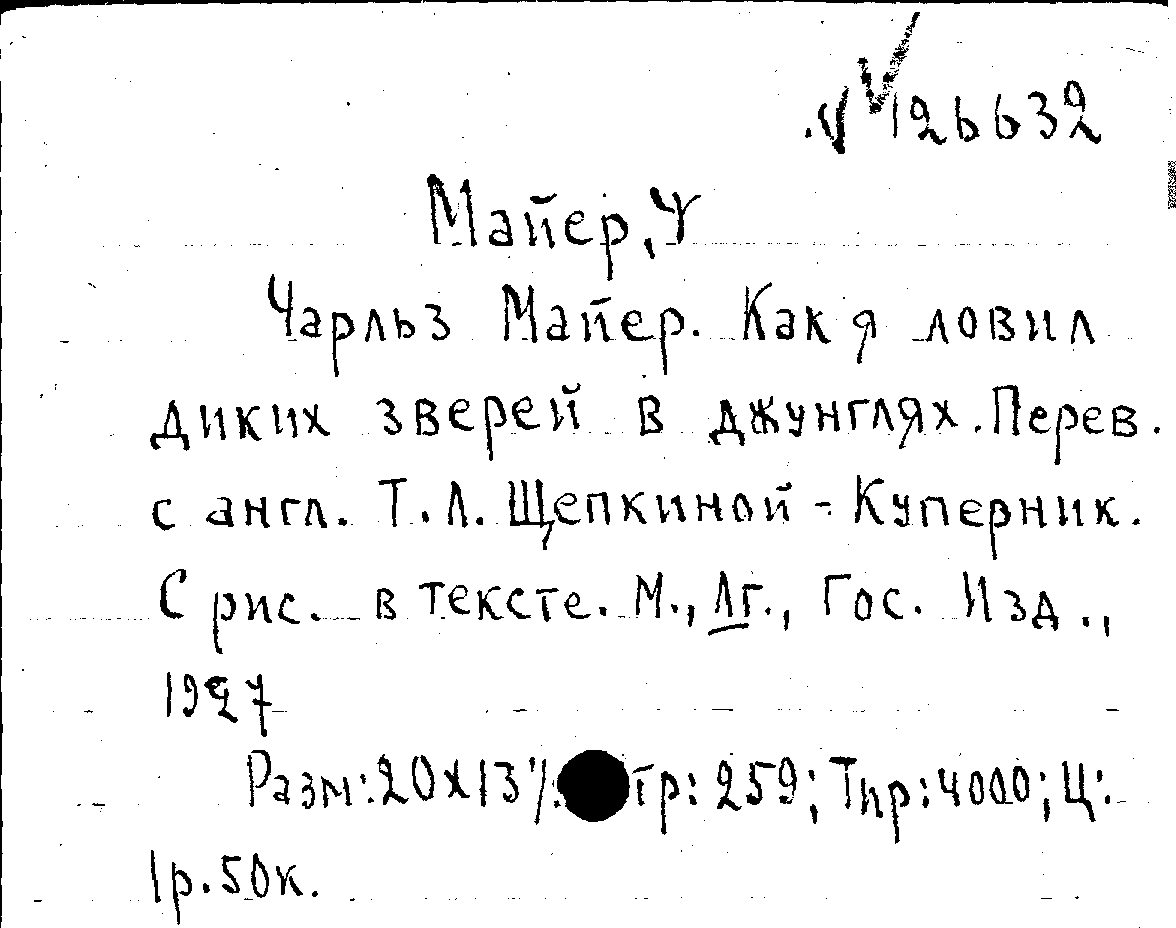 № 126632
Майер, Ч
Чарльз Майер. Как я ловил
диких зверей в джунглях. Перев.
с англ. Т. Л. Щепкиной-Куперник.
С рис. в тексте. М., Лг., Гос. Изд.,
1927
Разм: 20х13; тр: 259; Тир: 4000; Ц:
1р. 50к.